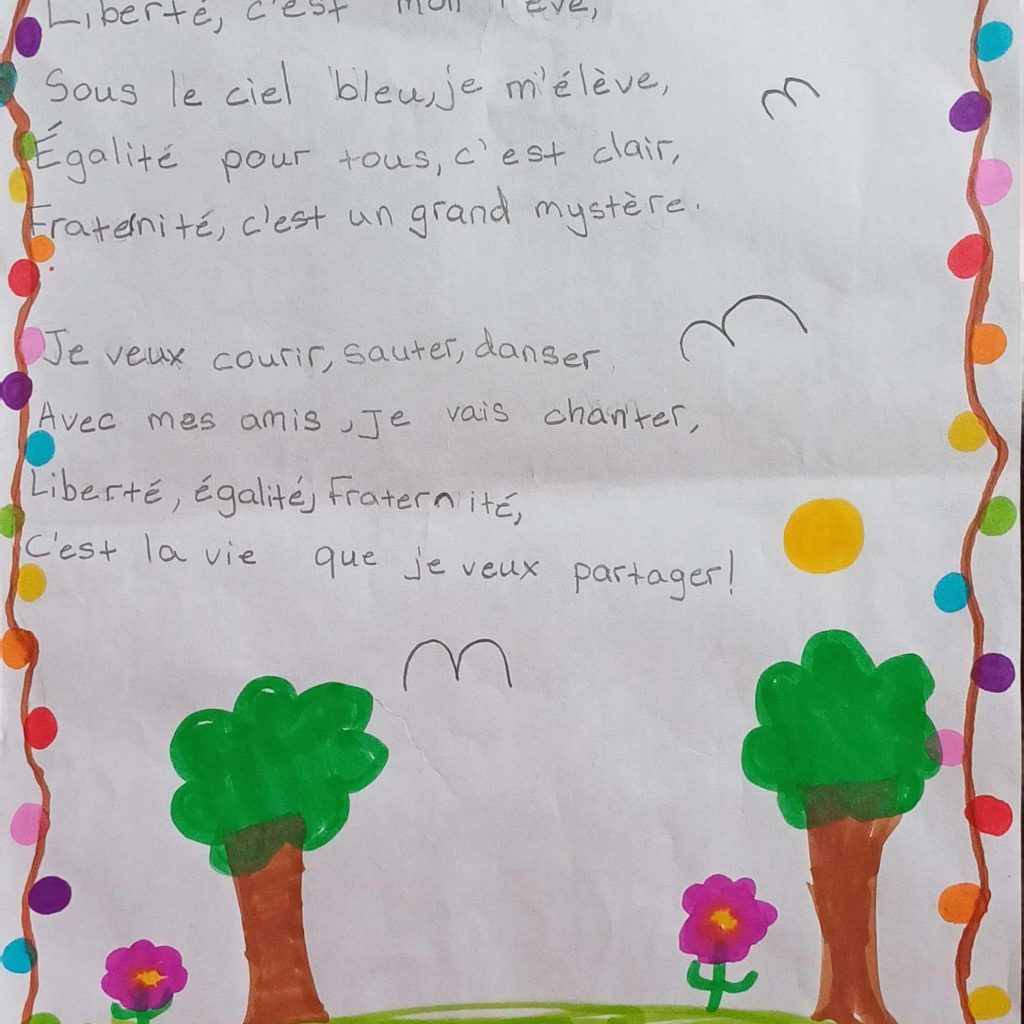 Liberté, c'est mon rêve,
Sous le ciel bleu, je m'élève,
Égalité pour tous, c'est clair,
Fraternité, c'est un grand mystère.
Je veux courir, sauter, danser
Avec mes amis, je vais chanter,
Liberté, égalité, Fraternité,
C'est la vie que je veux partager!